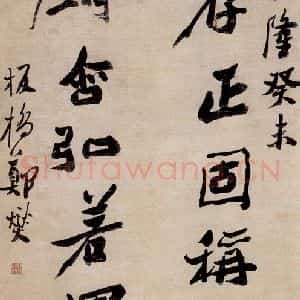 隆癸未
正固稱
弘著
板橋鄭燮
Shufawang.CN